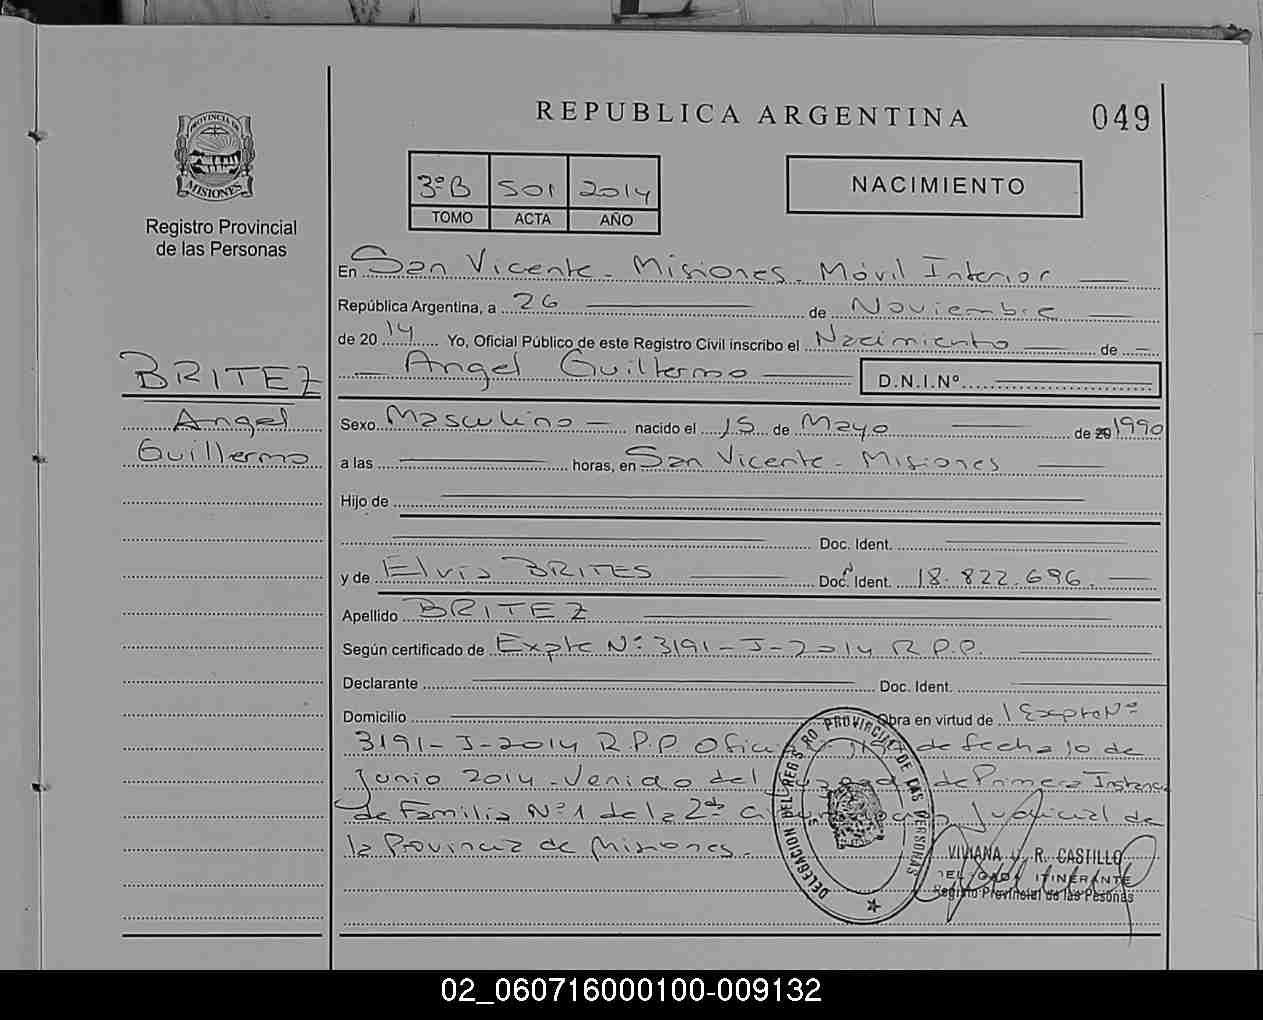 REPUBLICA ARGENTINA
049
PROVINCIA DE
MISIONES
Registro Provincial
de las Personas
3º B 501 2014
TOMO ACTA AÑO
NACIMIENTO
En San Vicente - Misiones - Móvil Interior
República Argentina, a 26 de Noviembre
de 2014 Yo, Oficial Público de este Registro Civil inscribo el Nacimiento de
Angel Guillermo D.N.I.Nº
BRITEZ
Angel
Guillermo
Sexo Masculino nacido el 15 de Mayo de 20 1990
a las horas, en San Vicente - Misiones
Hijo de
Doc. Ident.
y de Elvia BRITES Doc. Nº Ident. 18.822.696.
Apellido BRITEZ
Según certificado de Expte Nº 3191-J-2014 R.P.P.
Declarante Doc. Ident.
Domicilio Obra en virtud de Expte Nº
3191-J-2014 R.P.P. de fecha 10 de
Junio 2014 - Venido del Juzgado de Primera Instancia
de Familia Nº 1 de la 2da Judicial de
la Provincia de Misiones.
DELEGACION DEL REGISTRO PROVINCIAL DE LAS PERSONAS
VIVIANA J. R. CASTILLO
DELEGADA ITINERANTE
Registro Provincial de las Pesonas
02_060716000100-009132